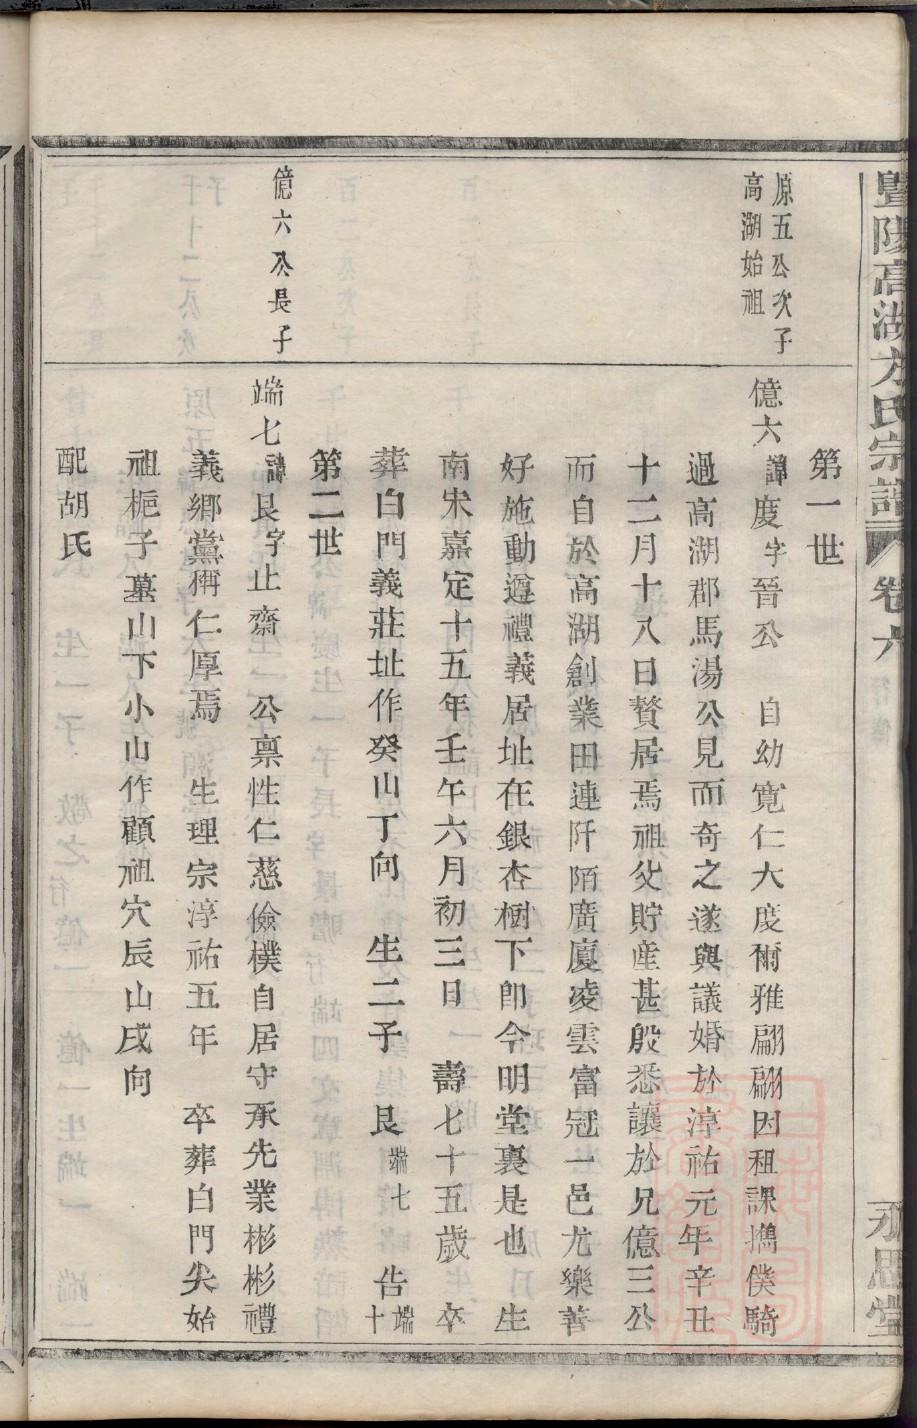 暨陽高湖方氏宗譜 卷六 永思堂
原五公次子
高湖始祖
第一世
億六諱度字晉公 自幼寬仁大度爾雅翩翩因租課攜僕騎
過高湖郡馬湯公見而奇之遂與議婚於淳祐元年辛丑
十二月十八日贅居焉祖父貯產甚殷悉讓於兄億三公
而自於高湖創業田連阡陌廣廈凌雲富冠一邑尤樂善
好施動遵禮義居址在銀杏樹下卽今明堂裏是也 生
南宋嘉定十五年壬午六月初三日 壽七十五歲 卒
葬白門義莊址作癸山丁向 生二子 艮端七 告端十
第二世
億六公長子
端七諱艮字止齋 公禀性仁慈儉樸自居守承先業彬彬禮
義鄉黨稱仁厚焉 生理宗淳祐五年 卒葬白門尖始
祖梔子墓山下小山作顧祖穴辰山戌向
配胡氏